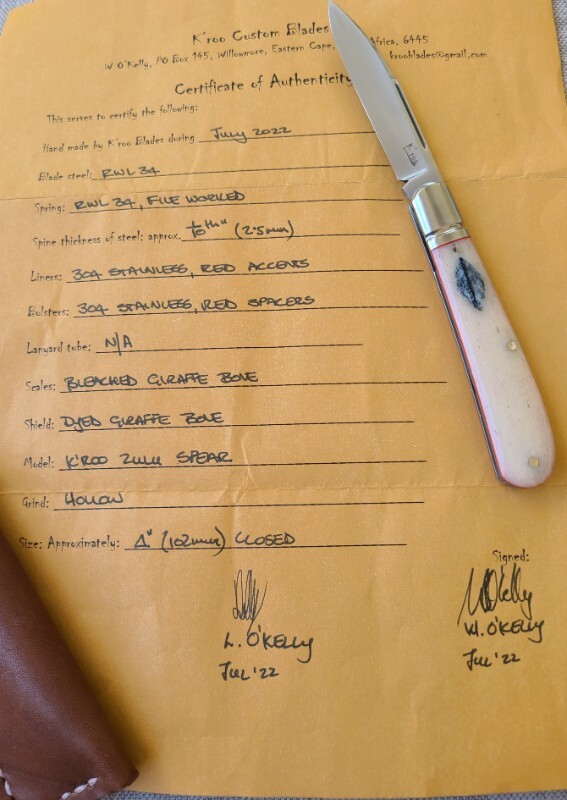 K'roo Custom Blades
W O'Kelly, PO Box 145, Willowmore, Eastern Cape, Africa, 6445
krooblades@gmail.com
Certificate of Authenticity
This serves to certify the following:
Hand made by K'roo Blades during July 2022
Blade steel: RWL 34
Spring: RWL 34, FILE WORKED
Spine thickness of steel: approx. 1/10th" (2.5mm)
Liners: 304 STAINLESS, RED ACCENTS
Bolsters: 304 STAINLESS, RED SPACERS
Lanyard tube: N/A
Scales: BLEACHED GIRAFFE BONE
Shield: DYED GIRAFFE BONE
Model: K'ROO ZULU SPEAR
Grind: HOLLOW
Size: Approximately: 4" (102mm) CLOSED
Signed:
L. O'KELLY
W. O'KELLY
JUL '22
JUL '22
K'roo